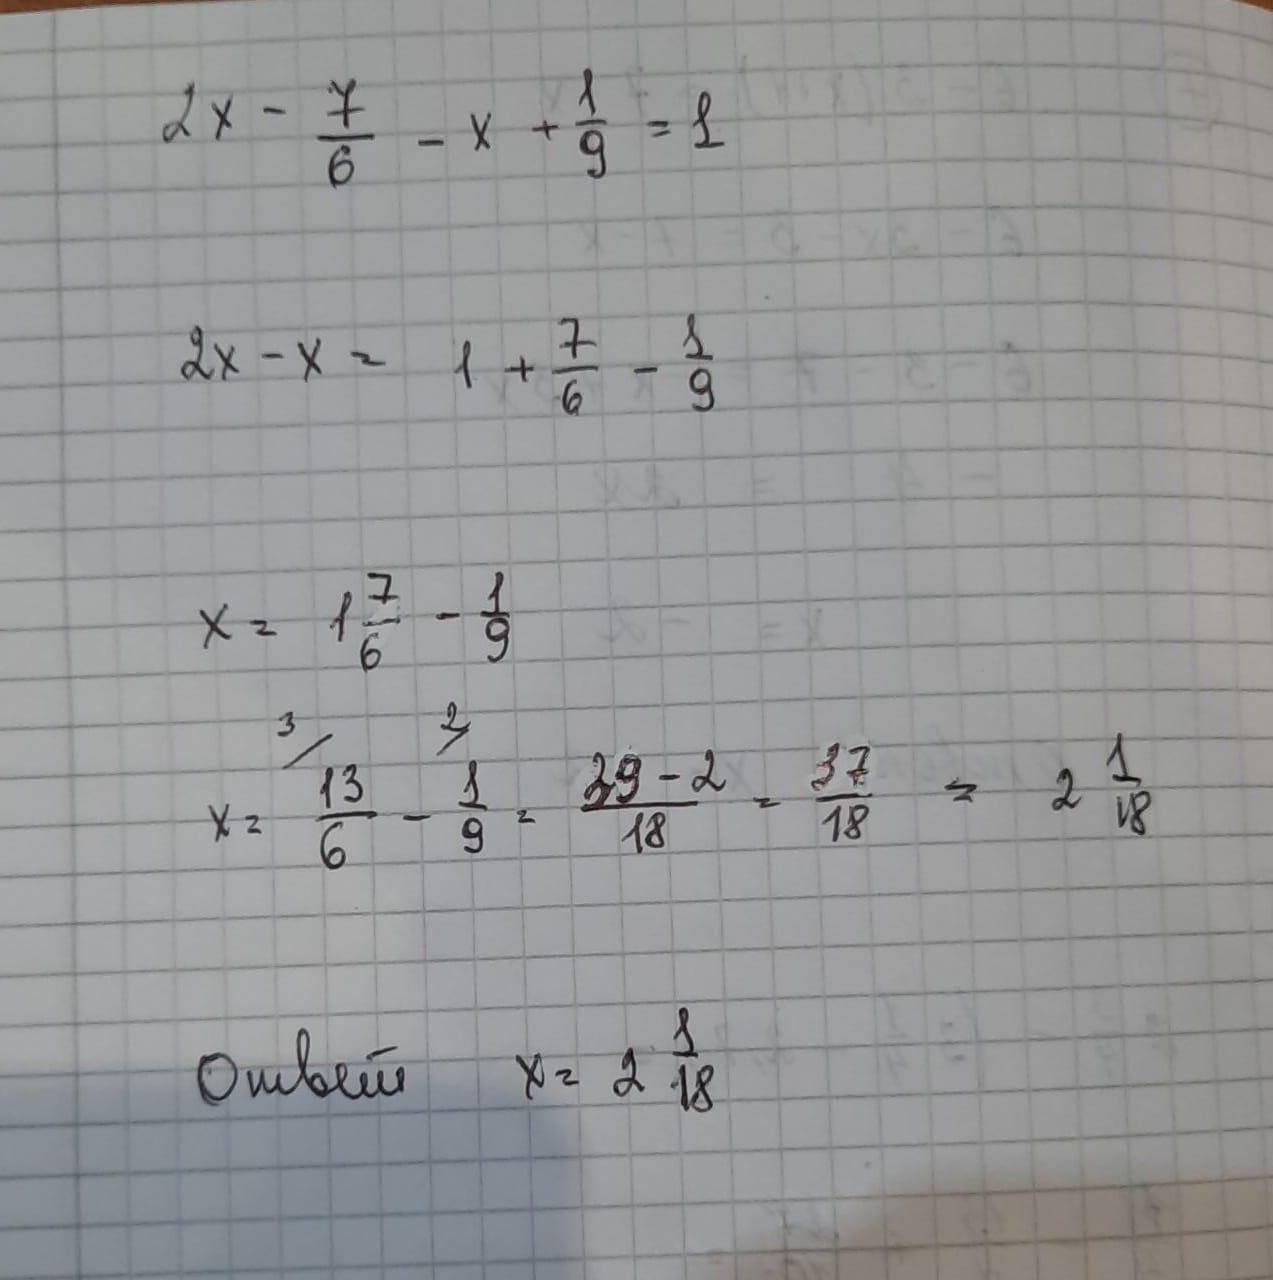 2x - 7/6 - x + 1/9 = 1
2x - x = 1 + 7/6 - 1/9
x = 1 7/6 - 1/9
3/ 2/
x = 13/6 - 1/9 = 39-2/18 = 37/18 = 2 1/18
Ответ x = 2 1/18